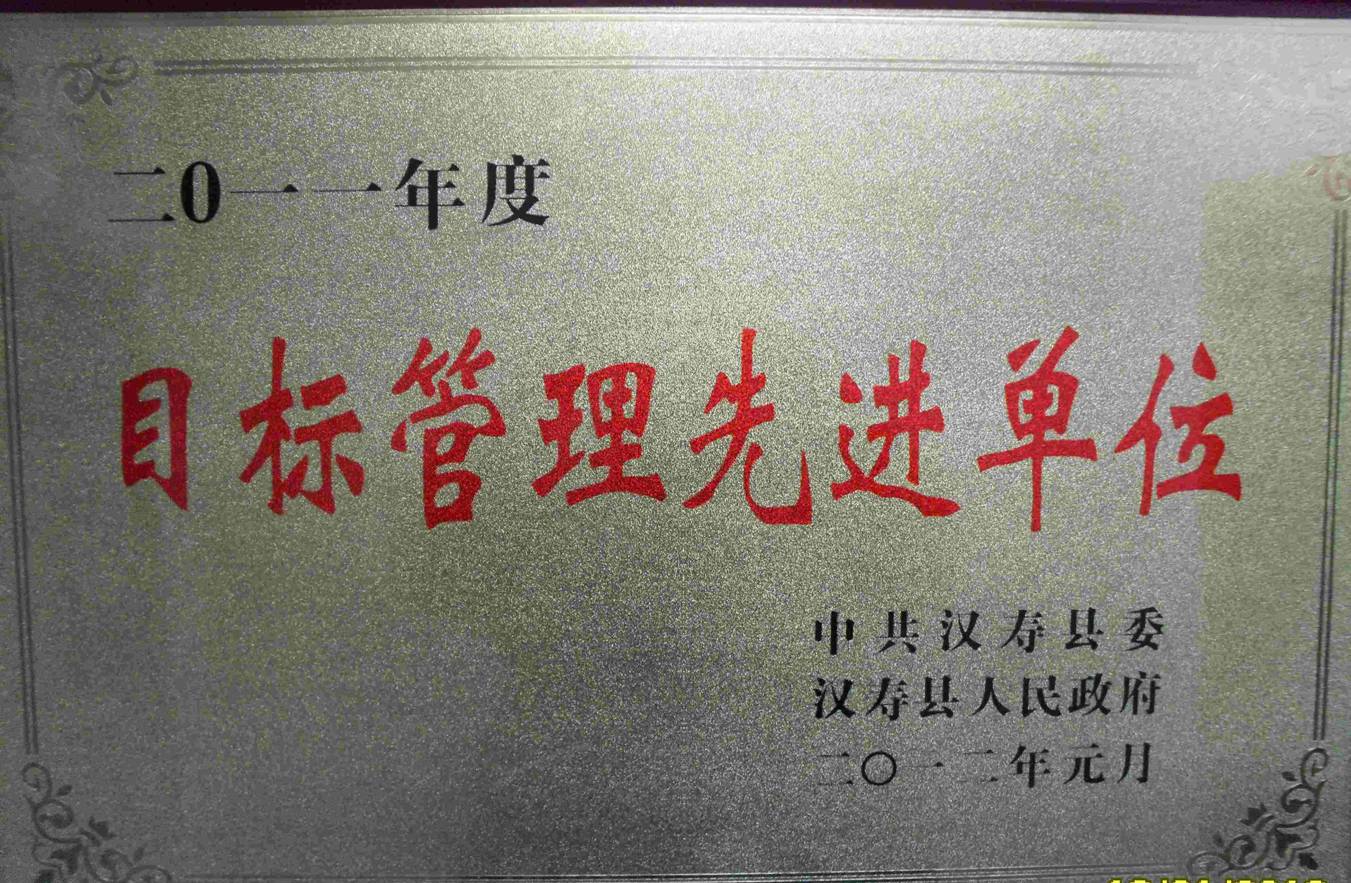 二0一一年度
目标管理先进单位
中共汉寿县委
汉寿县人民政府
二〇一二年元月